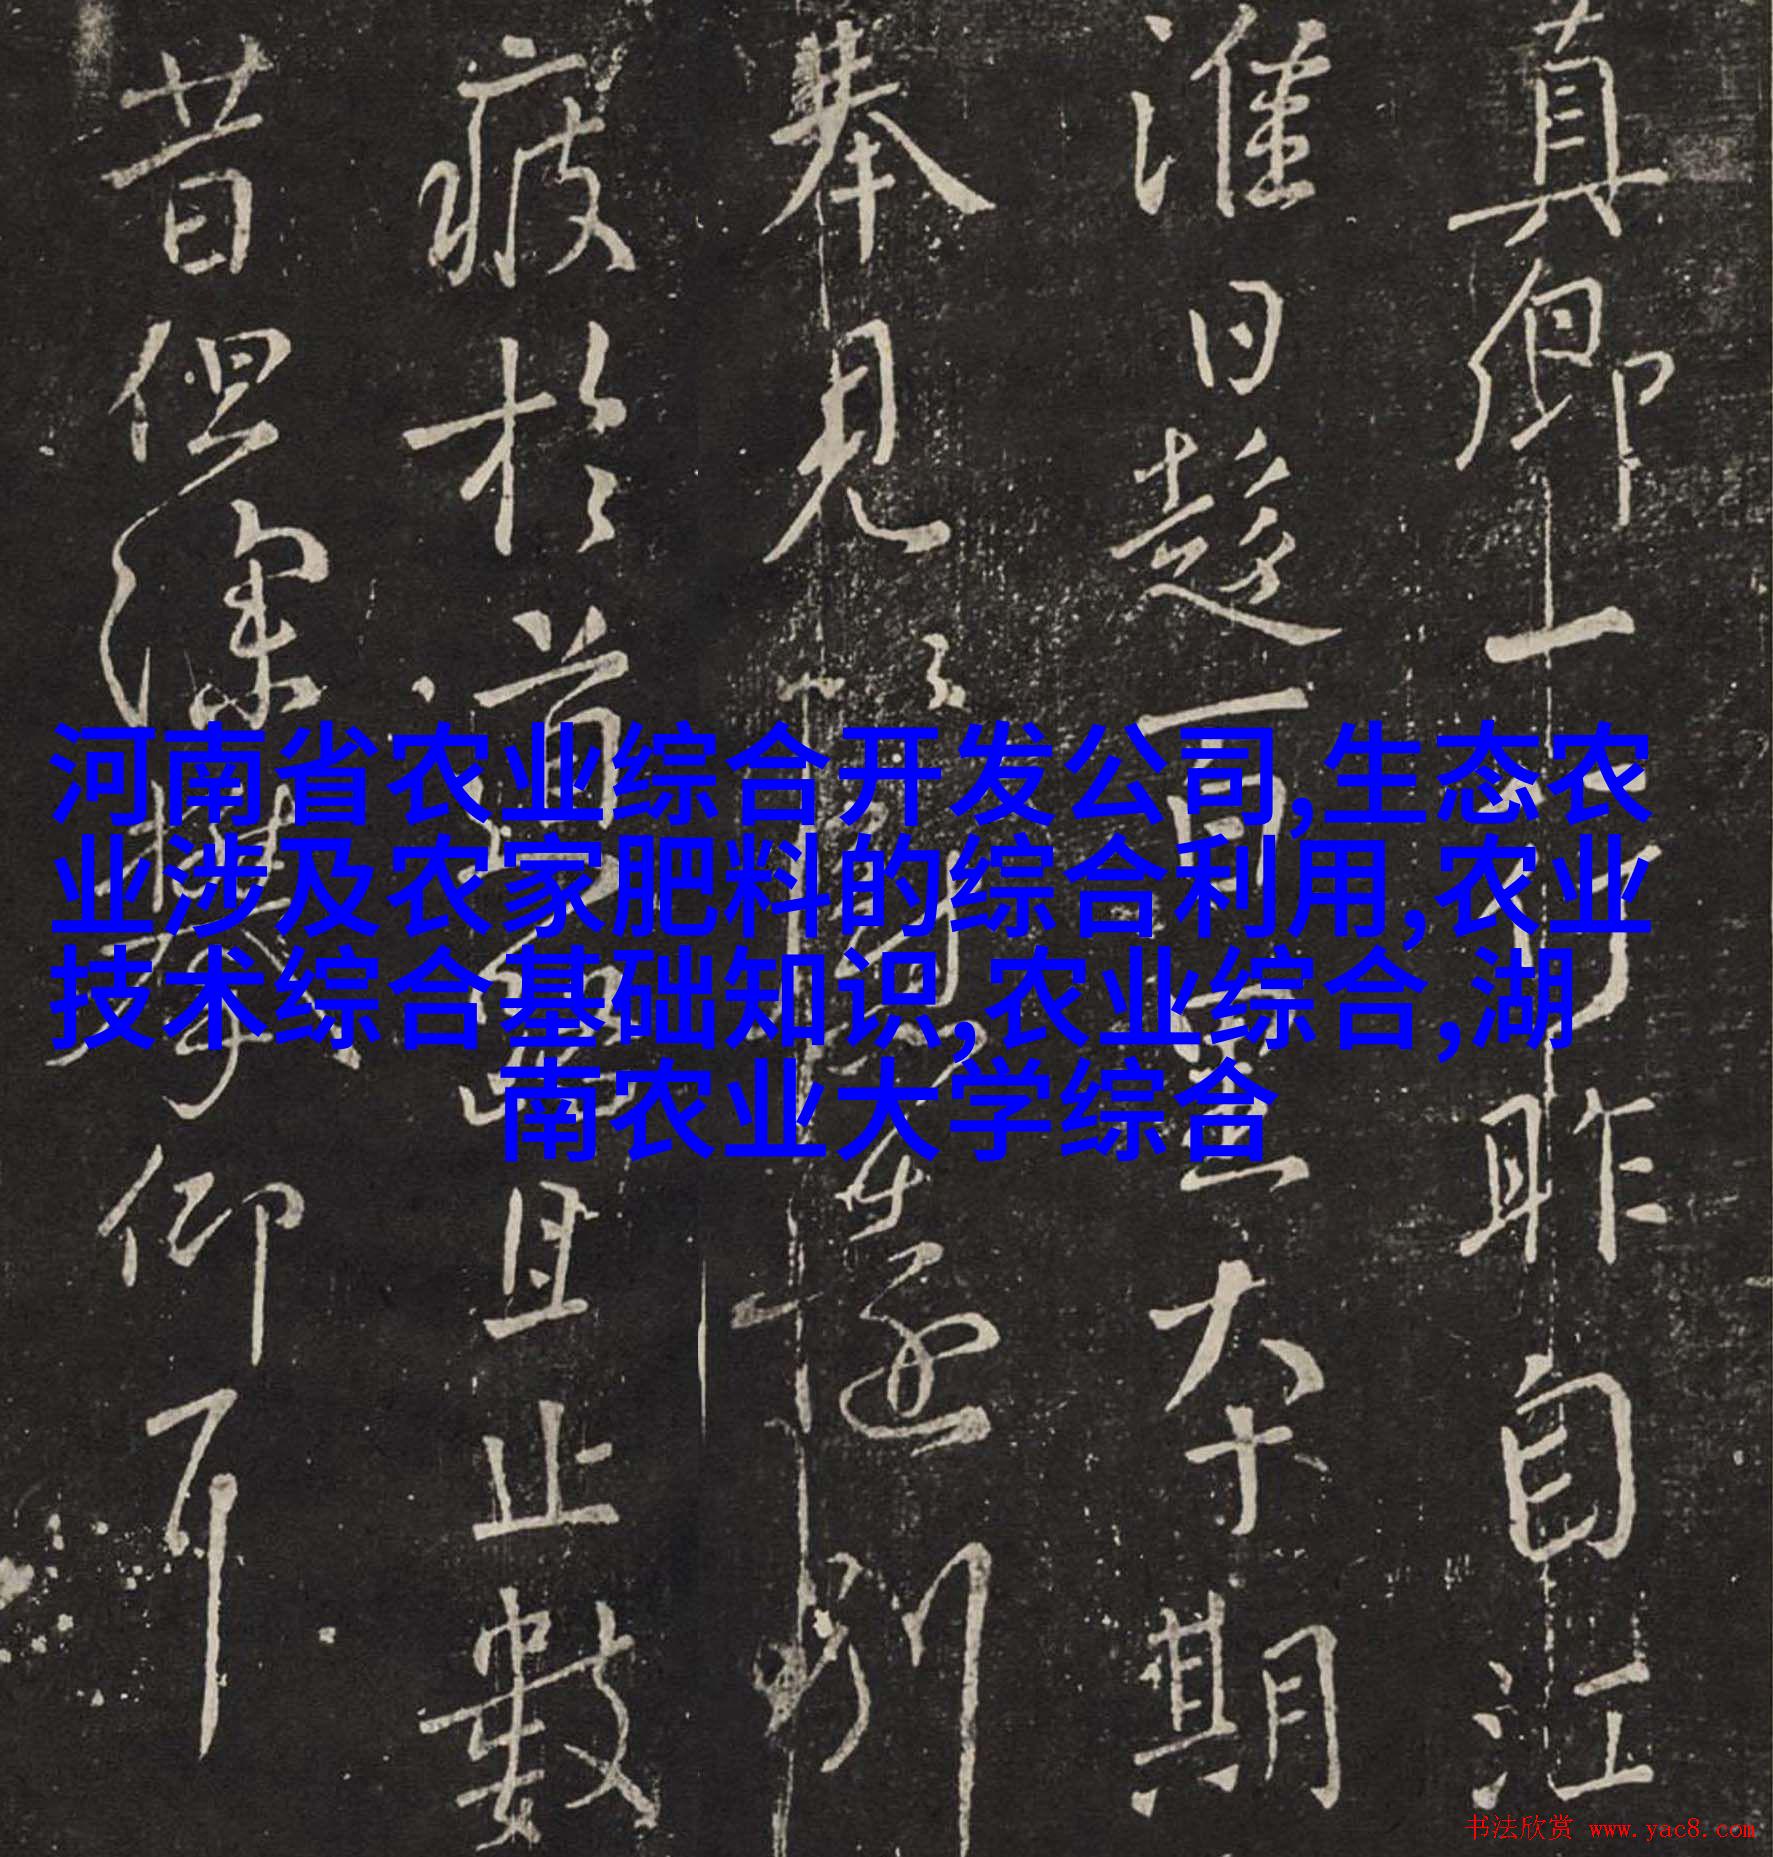 真卿一行昨自江
淮日趍百里本期
奉見
別
疲於首
且止數
昔但深攀仰耳
河南省农业综合开发公司,生态农
业涉及农家肥料的综合利用,农业
技术综合基础知识,农业综合,湖
南农业大学综合
书法欣赏 www.yac8.com